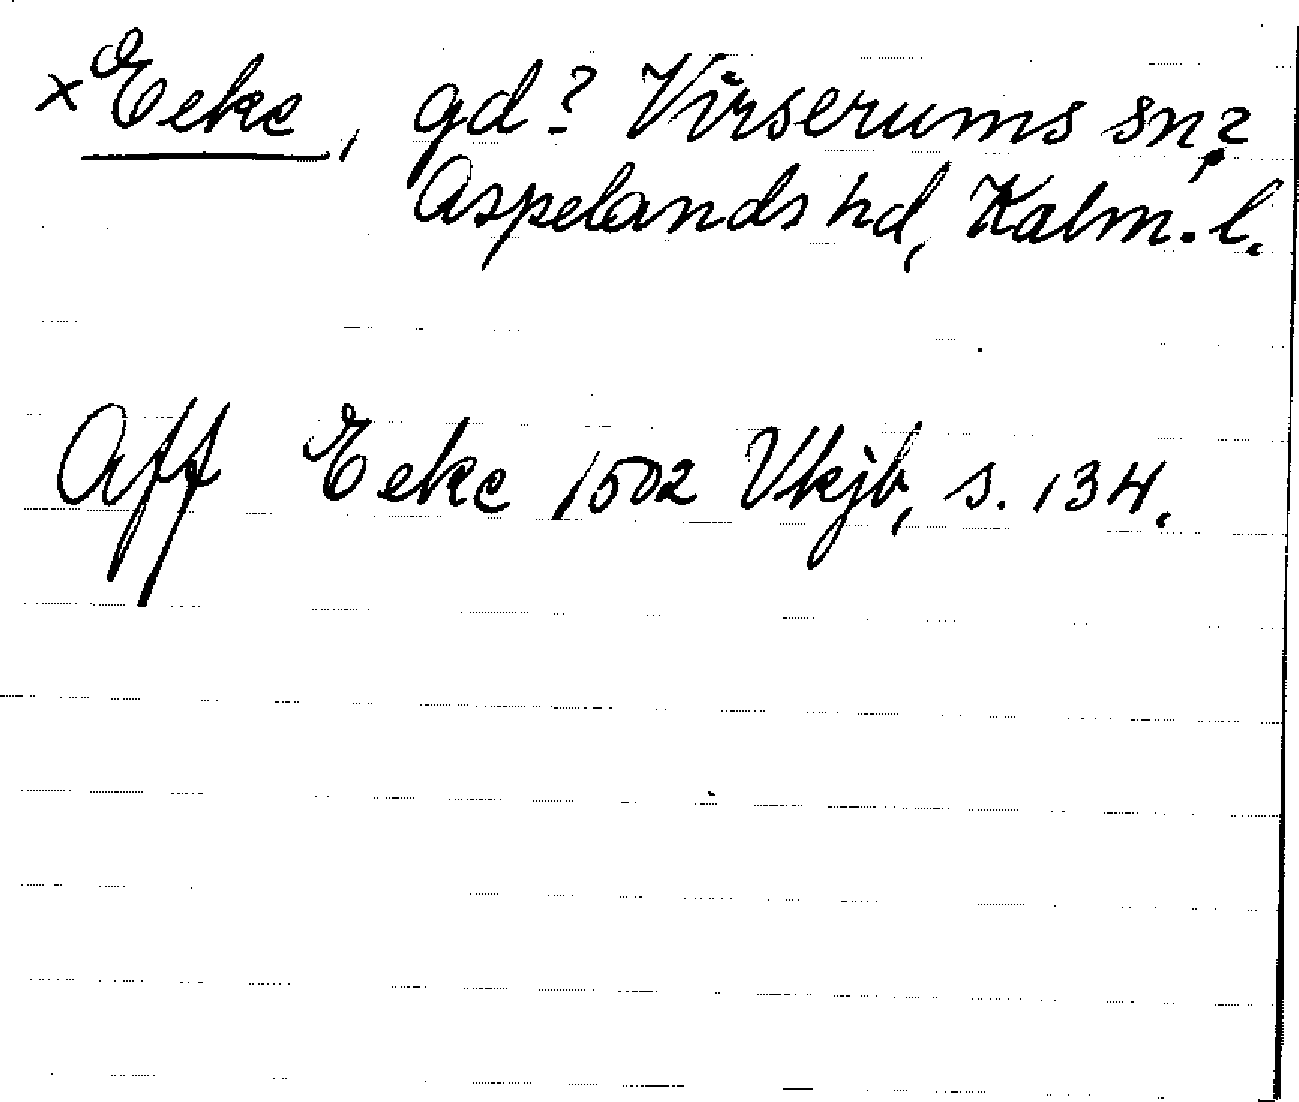 ×Eeke, gd? Virserums sn?,
Aspelands hd, Kalm. l.
Aff Eeke 1502 Vkjb, s. 134.